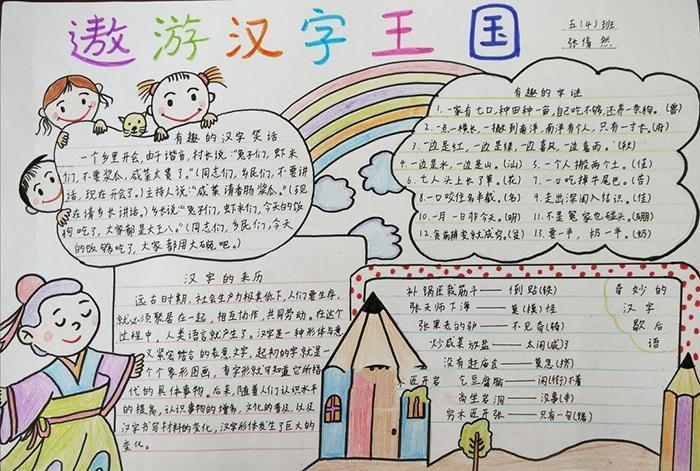 遨游汉字王国
五(4)班
张倩然
有趣的汉字笑话
一个乡里开会,由于谐音,村长说:“兔子们,虾米
们,不要浆瓜,咸菜太贵了。”(同志们,乡民们,不要讲
话,现在开会了。)主持人说:“咸菜请香肠浆瓜。”(现
在请乡长讲话。)乡长说:“兔子们,虾米们,今天的饭
狗吃了,大家都是大王八。”(同志们,乡民们,今天
的饭够吃了,大家都用大碗吧。)
有趣的字谜
1.一家有七口,种田种一亩,自己吃不够,还养一条狗。(兽)
2.一点一横长,一撇到南洋,南洋有个人,只有一寸长。(府)
3.一边是红,一边是绿,一边喜风,一边喜雨。(秋)
4.一边是水,一边是山。(汕)
5.一个人搬两个土。(佳)
6.七人头上长了草。(花)
7.一口吃掉牛尾巴。(告)
8.一口咬住多半截。(名)
9.走出深闺人结识。(佳)
10.一月一日非今天。(明)
11.不是冤家也碰头。(硼)
12.食前
13.要一半,扔一半。(奶)
汉字的来历
远古时期,社会生产力极其低下,人们要生存,
就必须聚居在一起,相互协作,共同劳动。在这个
过程中,人类语言就产生了。汉字是一种形体与意
义紧密结合的表意文字,起初的字就是一
个个象形图画,看字形就可知道它所指
代的具体事物。后来,随着人们认识水平
的提高,认识事物的增多,文化的普及,以及
汉字书写材料的变化,汉字形体发生了巨大的
变化。
奇妙的
汉字
歇后
语
补锅匠栽筋斗——倒贴(铁)
张天师下海——莫(摸)怪
张果老的驴——不见奇(骑)
炒咸菜放盐——太闲(咸)了
没有赶庙会——莫怠(挤)
木匠开岩
乞丐腐脑——闲(衔)不着
尚坐岩洞——没事(寺)
穷木匠开张——只有一句(锯)